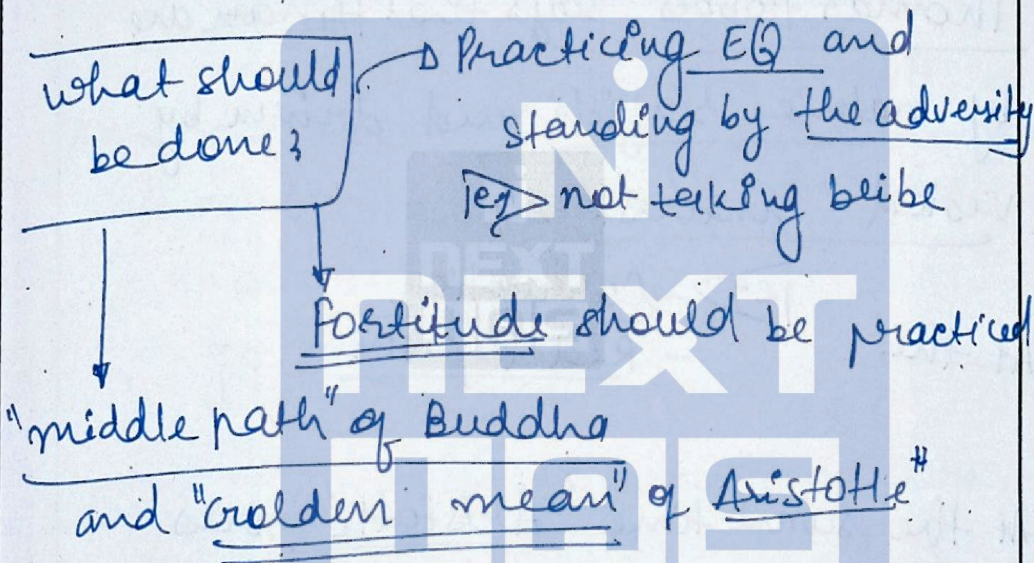 what should
be done?
Practicing EQ and
standing by the adversity
eg> not taking bribe
fortitude should be practiced
"middle path" of Buddha
and "Golden mean" of Aristotle"
NEXT
IAS